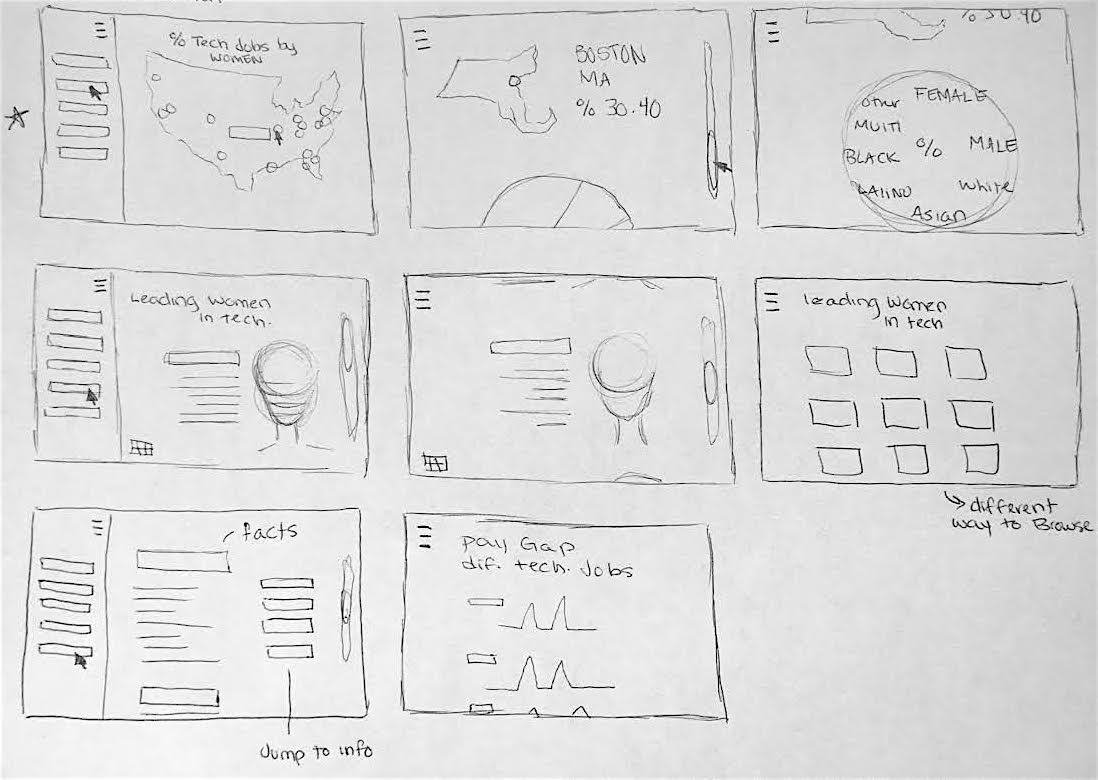 % Tech Jobs by
WOMEN
BOSTON
MA
% 30.40
% 30.40
Other FEMALE
MULTI
% MALE
BLACK
LATINO White
Asian
Leading Women
in tech.
Leading Women
in tech
different
way to Browse
facts
Jump to info
Pay Gap
dif. tech. Jobs